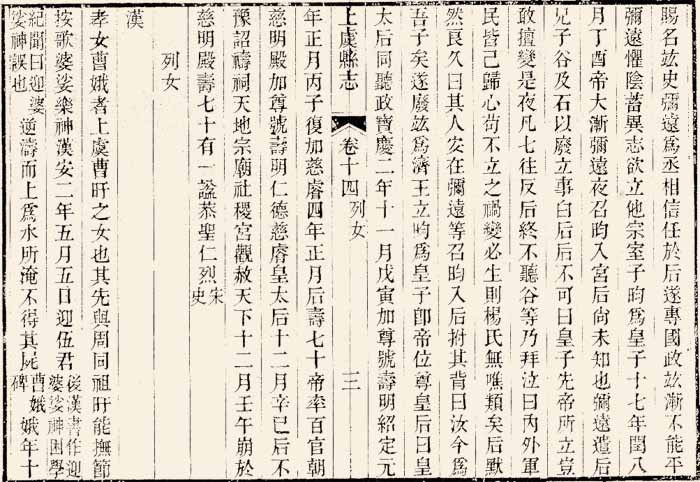 賜名竑史彌遠爲丞相信任於后遂專國政竑漸不能平
彌遠懼陰蓄異志欲立他宗室子昀爲皇子十七年閏八
月丁酉帝大漸彌遠夜召昀入宮后尙未知也彌遠遣后
兄子谷及石以廢立事白后后不可曰皇子先帝所立豈
敢擅變是夜凡七往反后終不聽谷等乃拜泣曰內外軍
民皆已歸心苟不立之禍變必生則楊氏無噍類矣后默
然良久曰其人安在彌遠等召昀入后拊其背曰汝今爲
吾子矣遂廢竑爲濟王立昀爲皇子卽帝位尊皇后曰皇
太后同聽政寶慶二年十一月戊寅加尊號壽明紹定元
上虞縣志
卷十四 列女
三
年正月丙子復加慈睿四年正月后壽七十帝率百官朝
慈明殿加尊號壽明仁德慈睿皇太后十二月辛巳后不
豫詔禱祠天地宗廟社稷宮觀赦天下十二月壬午崩於
慈明殿壽七十有一諡恭聖仁烈宋史
列女
漢
孝女曹娥者上虞曹旴之女也其先與周同祖旴能撫節
按歌婆娑樂神漢安二年五月五日迎伍君後漢書作迎婆娑神困學
紀聞曰迎婆娑神誤也逆濤而上爲水所淹不得其屍曹娥碑娥年十